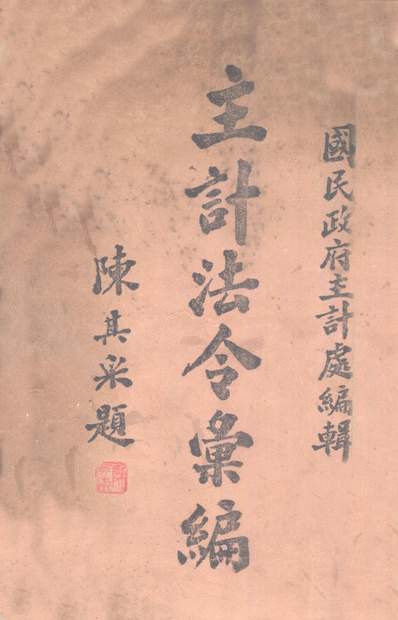 國民政府主計處編輯
主計法令彙編
陳其采題